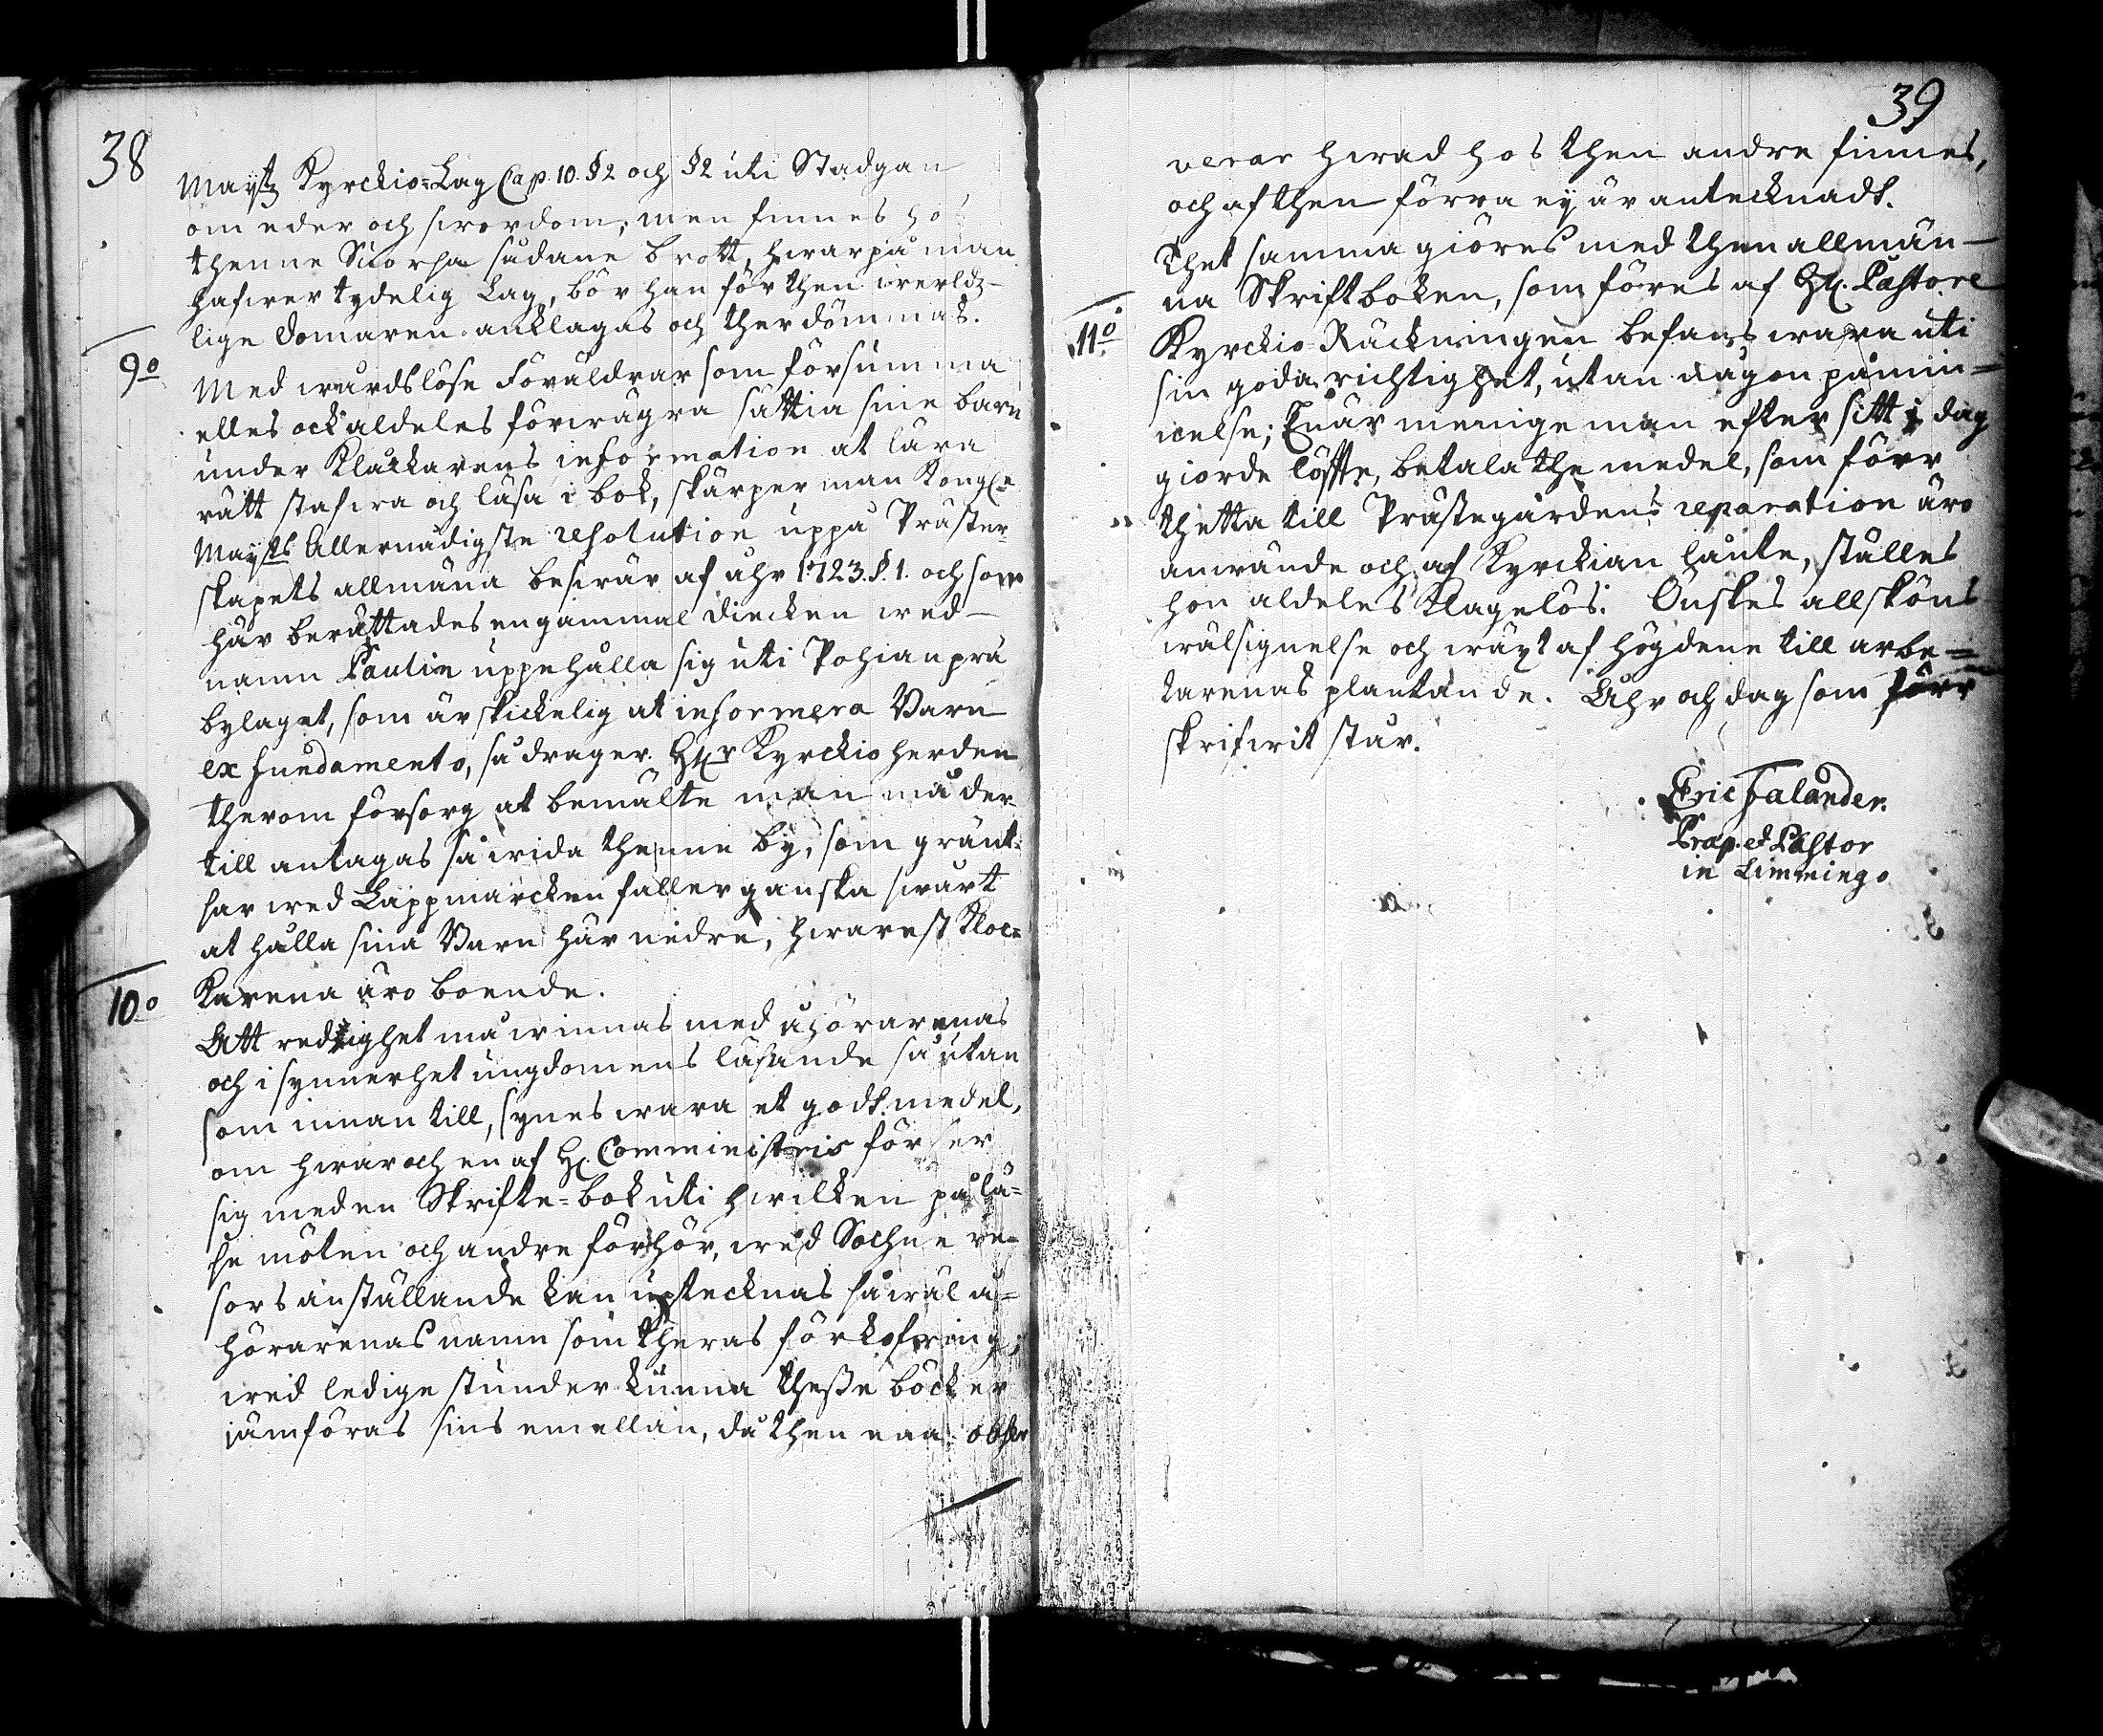 38
Mayttz Kyrckio=Lag Cap. 10. §2 och §2 uti Stadgan
om eder och swordom; men finnes ho
thenne sådane brott, hwarpå man
hafwer tydelig Lag, bör han för then werldz-
lige domaren anklagas och ther dömmas.
9o
Med wårdslöse Föräldrar som försumma
elles ock aldeles förwägra sättia sine barn
under Klåckarens information at lära
rätt stafwa och läsa i bok, skärper man Kongl.
Mayts Allernådigste resolution uppå Präster-
skapets allmäna beswär af åhr 1723. §. 1. och som
här berättades en gammal diecken wed
namn Paulin uppehålla sig uti Pohianprä
bylaget, som är skickelig at informera Barn
ex fundamento, så drager Hr Kyrckioherden
therom försorg at bemälte man må der
till antagas så wida thenne by, som gränt-
sar wed Lappmarcken faller ganska swårt
at hålla sina Barn här nedre, hwarest Kloc-
karena äro boende.
10o
Att redighet må winnas med åhörarenas
och i synnerhet ungdomens läsande så utan
som innan till, synes wara et godt medel,
om hwar och en af H. Comministris förser
sig med en Skrifte=bok uti hwilken på lä-
se möten och andre förhör, wed Sochne re-
sors anställande kan uptecknas så wäl å-
hörarenas namn som theras förkofring;
wid ledige stunder kunna theße böcker
jämföras sins emellan, då then ena obser
39
verar hwad hos then andre finnes,
och af then förra ey är antecknadt.
Thet samma giöres med then allmän-
na Skriftboken, som föres af H. Pastore
11o
Kyrckio Räckningen befans wara uti
sin goda richtighet, utan någon påmin-
nelse; Enär menige man efter sitt i dag
giorde löffte, betala the medel, som förr
thetta till Prästegårdens reparation äro
anwände och af Kyrckian lånte, ställes
hon aldeles klagelös. Önskes allsköns
wälsignelse och wäxt af högdene till arbe-
tarenas plantande. Åhr och dag som förr
skrifwit står.
Eric Falander.
Præp. et Pastor
in Limmingo